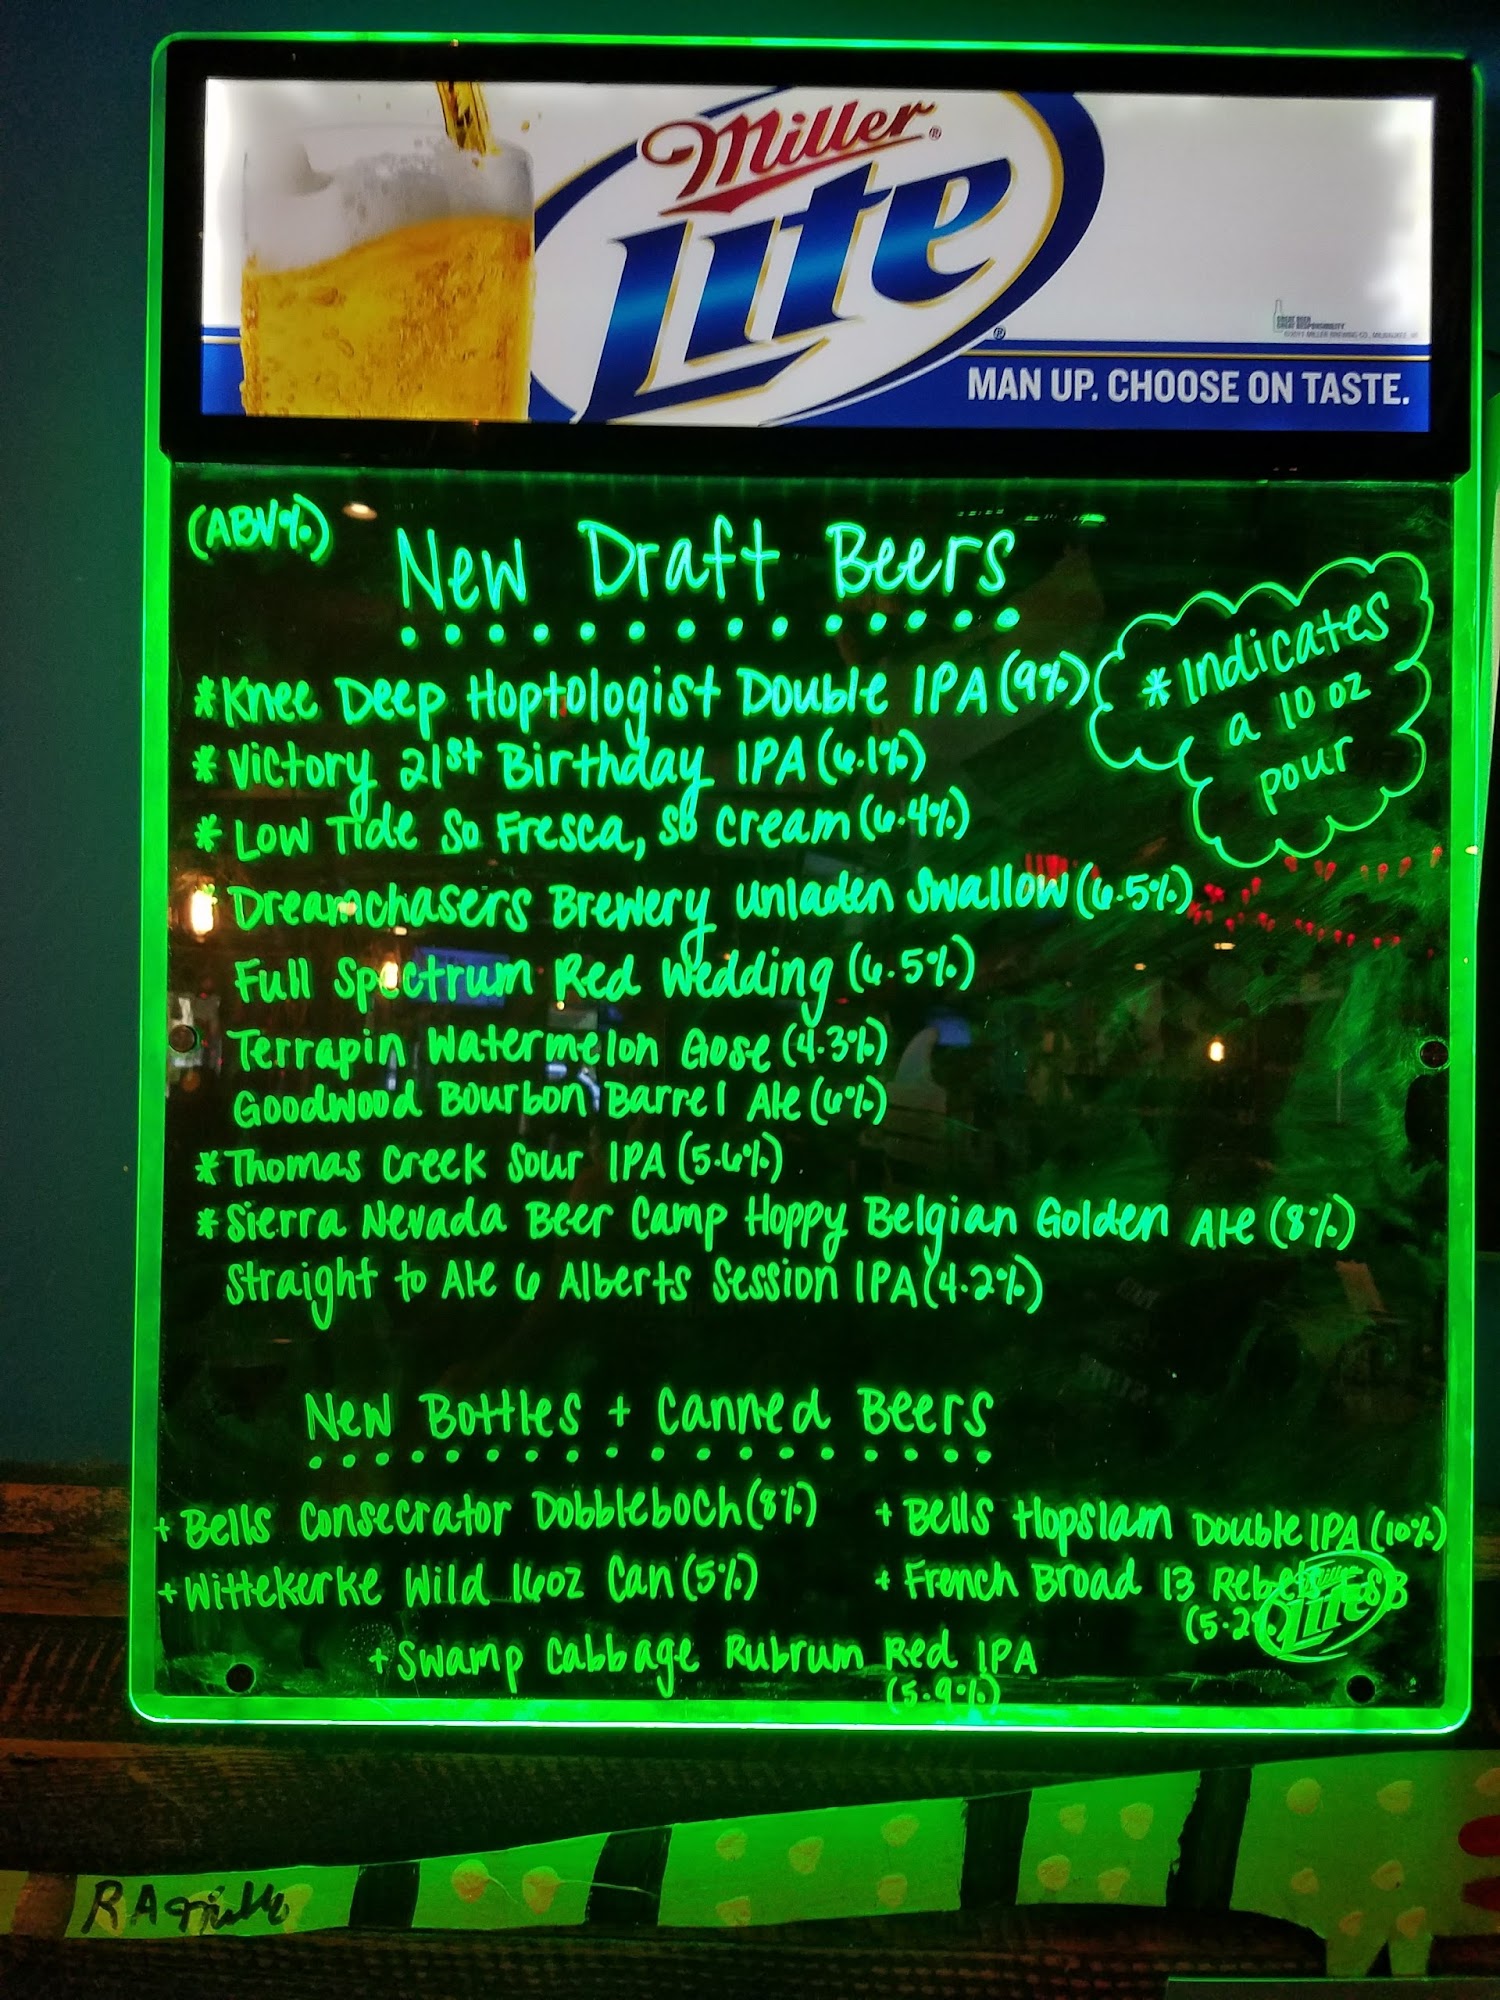 Miller
Lite
GREAT BEER
GREAT RESPONSIBILITY
MAN UP. CHOOSE ON TASTE.
(ABV%)
New Draft Beers
* Indicates
a 10 oz
pour
*Knee Deep Hoptologist Double IPA (9%)
* Victory 21st Birthday IPA (6.1%)
* Low Tide So Fresca, So Cream (6.4%)
* Dreamchasers Brewery Unladen Swallow (6.5%)
Full Spectrum Red Wedding (6.5%)
Terrapin Watermelon Gose (4.3%)
Goodwood Bourbon Barrel Ale (6%)
*Thomas Creek Sour IPA (5.6%)
*Sierra Nevada Beer Camp Hoppy Belgian Golden Ale (8%)
Straight to Ale 6 Alberts Session IPA (4.2%)
New Bottles + Canned Beers
+ Bells Consecrator Dobbleboch (8%)
+ Bells Hopslam Double IPA (10%)
+ Wittekerke Wild 16oz Can (5%)
+ French Broad 13 Rebels ESB
(5.2%)
Miller
Lite
+ Swamp Cabbage Rubrum Red IPA
(5.9%)